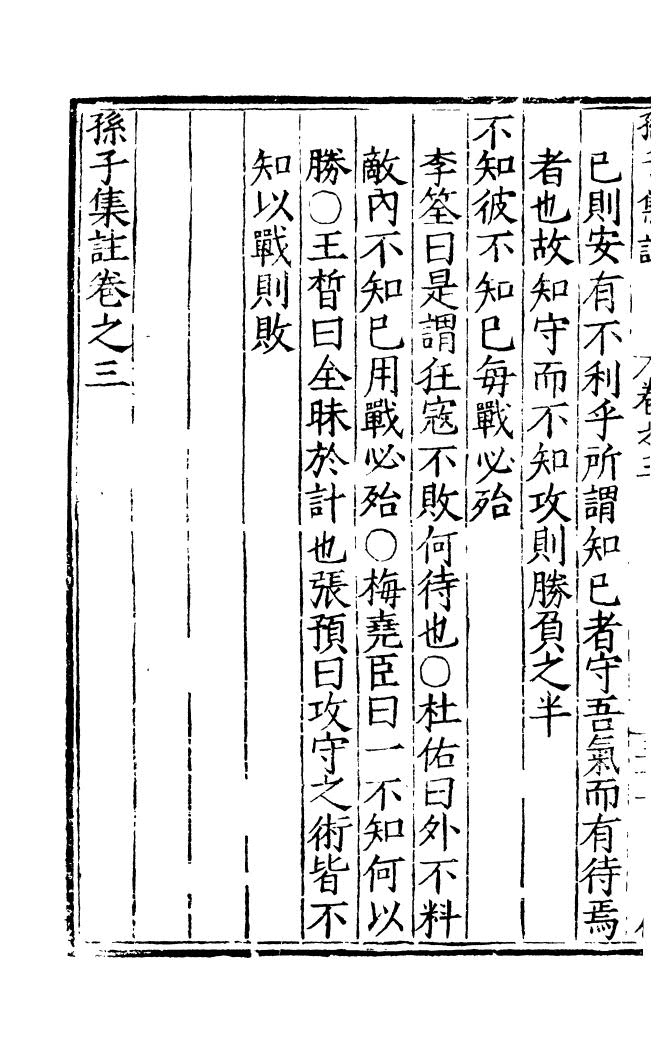 已則安有不利乎所謂知已者守吾氣而有待焉
者也故知守而不知攻則勝負之半
不知彼不知已每戰必殆
李筌曰是謂狂寇不敗何待也○杜佑曰外不料
敵內不知已用戰必殆○梅堯臣曰一不知何以
勝○王晳曰全昧於計也張預曰攻守之術皆不
知以戰則敗
孫子集註卷之三